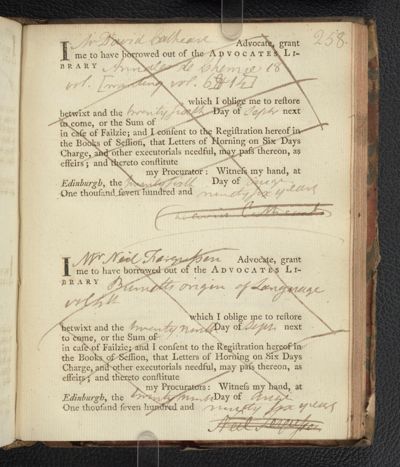 258.
I Mr David Cathcart Advocate, grant
me to have borrowed out of the ADVOCATES LI-
BRARY Annales de Chimie 18
vol. [wanting vol. 6 & 14]
, which I oblige me to restore
betwixt and the twenty sixth Day of Septr next
to come, or the Sum of
in case of Failzie; and I consent to the Registration hereof in
the Books of Session, that Letters of Horning on Six Days
Charge, and other executorials needful, may pass thereon, as
effeirs; and thereto constitute
my Procurator: Witness my hand, at
Edinburgh, the twenty sixth Day of
One thousand seven hundred and ninety six years
I Mr Neil Fergusson Advocate, grant
me to have borrowed out of the ADVOCATES LI-
BRARY Burnetts origin of Language
which I oblige me to restore
betwixt and the twenty ninth Day of Septr. next
to come, or the Sum of
in case of Failzie; and I consent to the Registration hereof in
the Books of Session, that Letters of Horning on Six Days
Charge, and other executorials needful, may pass thereon, as
effeirs; and thereto constitute
my Procurators: Witness my hand, at
Edinburgh, the twenty ninth Day of
One thousand seven hundred and ninety six years
Neil Fergusson